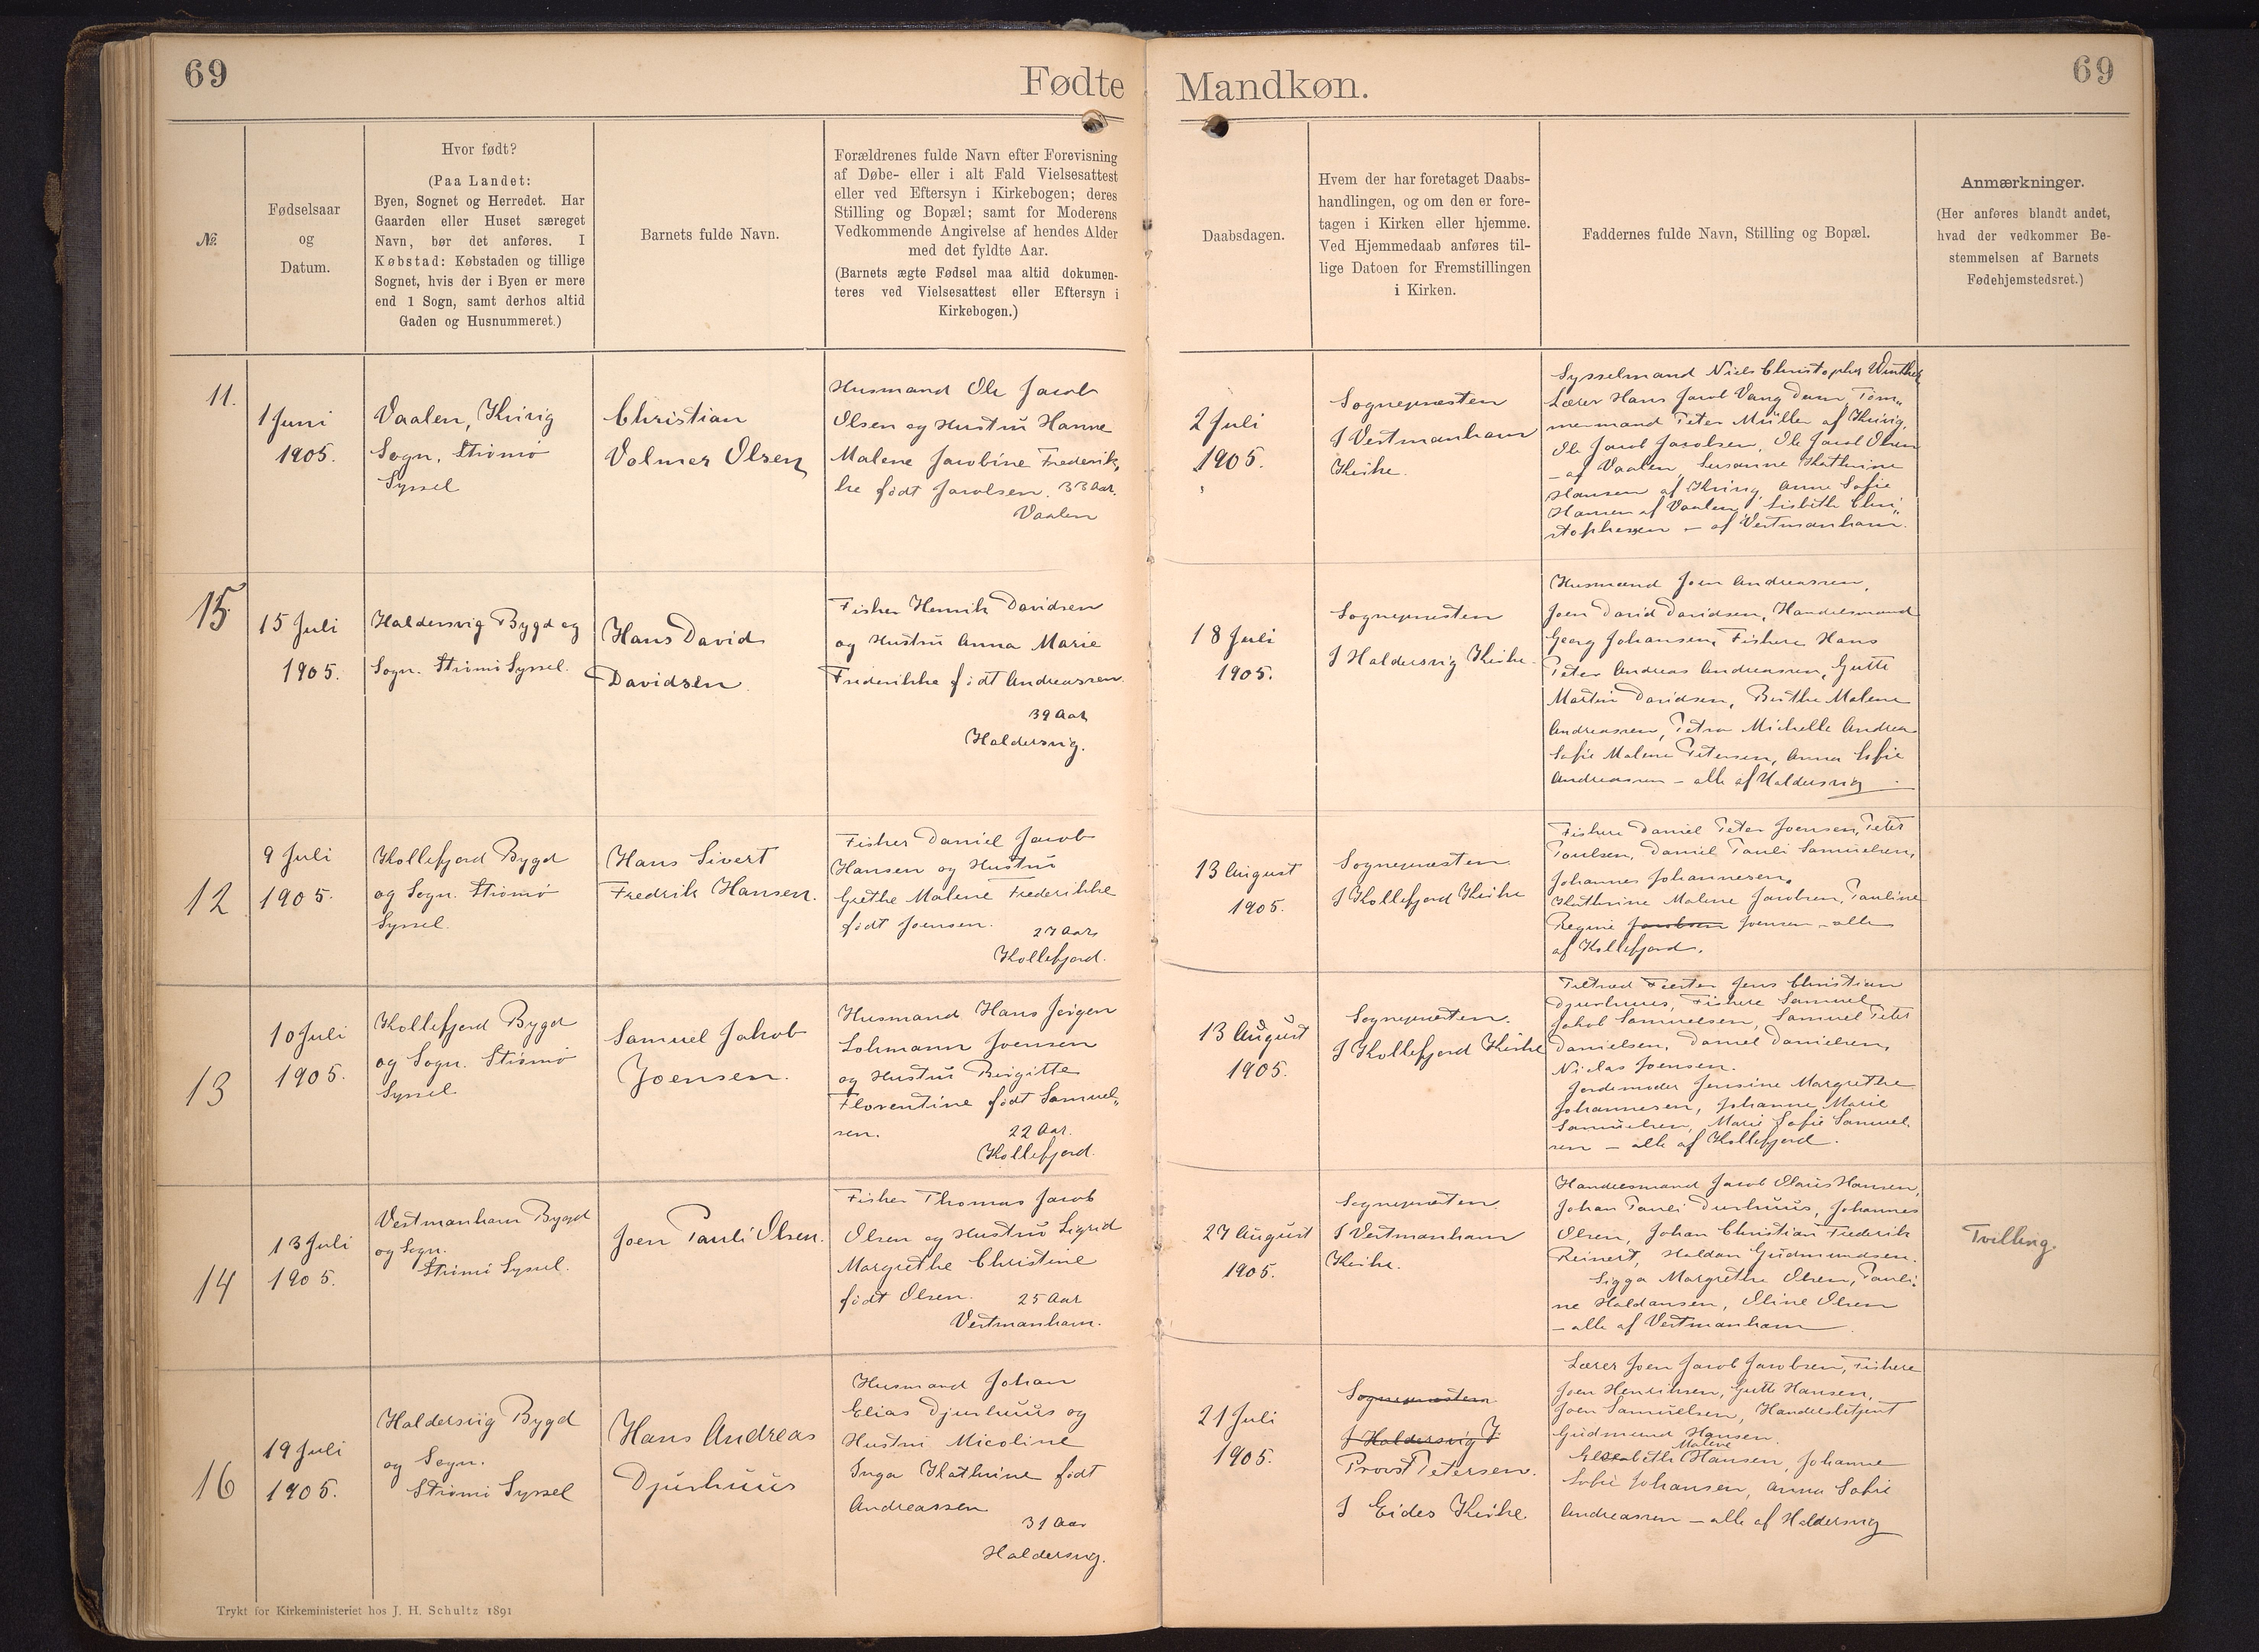 69
Fødte
Mandkøn.
69
№
Fødselsaar
og
Datum.
Hvor født?
(Paa Landet:
Byen, Sognet og Herredet. Har
Gaarden eller Huset særeget
Navn, bør det anføres. I
Købstad: Købstaden og tillige
Sognet, hvis der i Byen er mere
end 1 Sogn, samt derhos altid
Gaden og Husnummeret.)
Barnets fulde Navn.
Forældrenes fulde Navn efter Forevisning
af Døbe- eller i alt Fald Vielsesattest
eller ved Eftersyn i Kirkebogen; deres
Stilling og Bopæl; samt for Moderens
Vedkommende Angivelse af hendes Alder
med det fyldte Aar.
(Barnets ægte Fødsel maa altid dokumen-
teres ved Vielsesattest eller Eftersyn i
Kirkebogen.)
Daabsdagen.
Hvem der har foretaget Daabs-
handlingen, og om den er fore-
tagen i Kirken eller hjemme.
Ved Hjemmedaab anføres til-
lige Datoen for Fremstillingen
i Kirken.
Faddernes fulde Navn, Stilling og Bopæl.
Anmærkninger.
(Her anføres blandt andet,
hvad der vedkommer Be-
stemmelsen af Barnets
Fødehjemstedsret.)
11.
1 Juni
1905.
Vaalen, Kvivig
Sogn, Strømø
Syssel
Christian
Volmer Olsen
Husmand Ole Jacob
Olsen og Hustru Hanne
Malene Jacobine Frederik,
ke født Jacobsen. 33 Aar.
Vaalen
2 Juli
1905.
Sognepræsten
I Vestmanhavn
Kirke.
Sysselmand Niels Christopher Winther
Lærer Hans Jacob Vang Dam, Töm„
mermand Peter Müller af Kvivig,
Ole Jacob Jacobsen, Ole Jacob Olsen
- af Vaalen, Susanne Kathrine
Hansen af Kvivig, Anne Sofie
Hansen af Vaalen, Lisbeth Chri„
stophersen - af Vestmanhavn.
15
15 Juli
1905.
Haldersvig Bygd og
Sogn. Strømø Syssel.
Hans David
Davidsen
Fisker Henrik Davidsen
og Hustru Anna Marie
Frederikke født Andreassen
39 Aar
Haldersvig.
18 Juli
1905.
Sognepræsten
I Haldersvig Kirke.
Husmænd Joen Andreassen,
Joen David Davidsen, Handelsmand
Georg Johansen, Fiskere Hans
Peter Andreas Andreassen, Gutte
Martin Davidsen, Birthe Malene
Andreassen, Petra Michelle Andrea
Sofie Malene Petersen, Anna Sofie
Andreassen - alle af Haldersvig
12
9 Juli
1905.
Kollefjord Bygd
og Sogn. Strømø
Syssel.
Hans Sivert
Fredrik Hansen.
Fisker Daniel Jacob
Hansen og Hustru
Grethe Malene Frederikke
født Joensen.
27 Aar
Kollefjord.
13 August
1905.
Sognepræsten
I Kollefjord Kirke
Fiskere Daniel Peter Joensen, Peter
Poulsen, Daniel Pauli Samuelsen,
Johannes Johannesen.
Kathrine Malene Jacobsen, Pauline
Regine Jacobsen Joensen - alle
af Kollefjord.
13
10 Juli
1905.
Kollefjord Bygd
og Sogn. Strømø
Syssel
Samuel Jakob
Joensen.
Husmand Hans Jørgen
Lohmann Joensen
og Hustru Birgitte
Florentine født Samuel„
sen.
22 Aar.
Kollefjord.
13 August
1905.
Sognepræsten.
I Kollefjord Kirke
Jens Christian
Djurhuus, Fiskere Samuel
Jakob Samuelsen, Samuel Peter
Danielsen, Daniel Danielsen,
Niclas Joensen.
Jordemoder Jensine Margrethe
Johannesen, Johanne Marie
Samuelsen, Marie Sofie Samuel
sen - alle af Kollefjord.
14
13 Juli
1905.
Vestmanhavn Bygd
og Sogn.
Strømø Syssel.
Joen Pauli Olsen.
Fisker Thomas Jacob
Olsen og Hustru Sigrid
Margrethe Christine
født Olsen.
25 Aar
Vestmanhavn.
27 August
1905.
Sognepræsten.
I Vestmanhavn
Kirke.
Handelsmand Jacob Olaus Hansen,
Johan Pauli Durhuus, Johannes
Olsen, Johan Christian Frederik
Reinert, Haldan Gudmundsen.
Sigga Margrethe Olsen, Pauli„
ne Haldansen, Oline Olsen
- alle af Vestmanhavn
Tvilling.
16
19 Juli
1905.
Haldersvig Bygd
og Sogn.
Strømø Syssel
Hans Andreas
Djurhuus
Husmand Johan
Elias Djurhuus og
Hustru Nicoline
Inga Kathrine født
Andreassen
31 Aar
Haldersvig.
21 Juli
1905.
Sognepræsten
I Haldersvig
Provst Petersen.
I Eides Kirke.
Lærer Joen Jacob Jacobsen, Fiskere
Joen Henriksen, Gutte Hansen,
Joen Samuelsen, Handelsbetjent
Gudmund Hansen.
Malene
Hansen, Johanne
Sofie Johansen, Anna Sofie
Andreassen - alle af Haldersvig
Trykt for Kirkeministeriet hos J. H. Schultz 1891